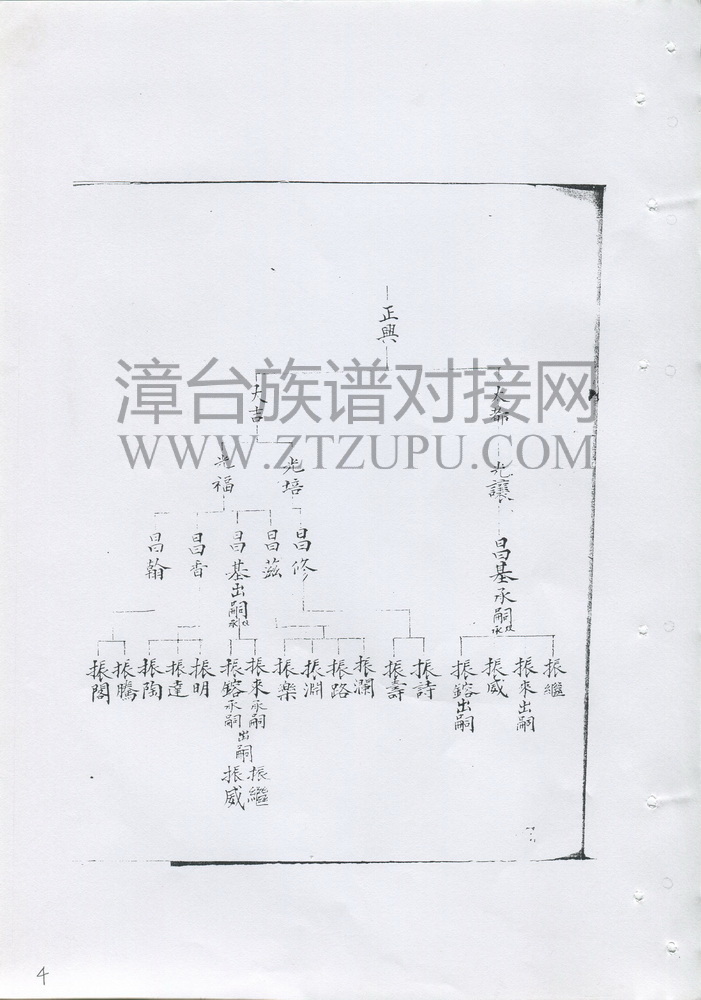 正興
大都
天吉
漳台族谱对接网
WWW.ZTZUPU.COM
光讓
光培
光福
昌基承嗣
昌修
昌茲
昌基出嗣
昌香
昌翰
振繼
振來出嗣
振威
振鎔出嗣
振詩
振壽
振瀾
振路
振淵
振樂
振來承嗣
振鎔承嗣
出嗣
振繼
振威
振明
振達
振陶
振騰
振閣
4